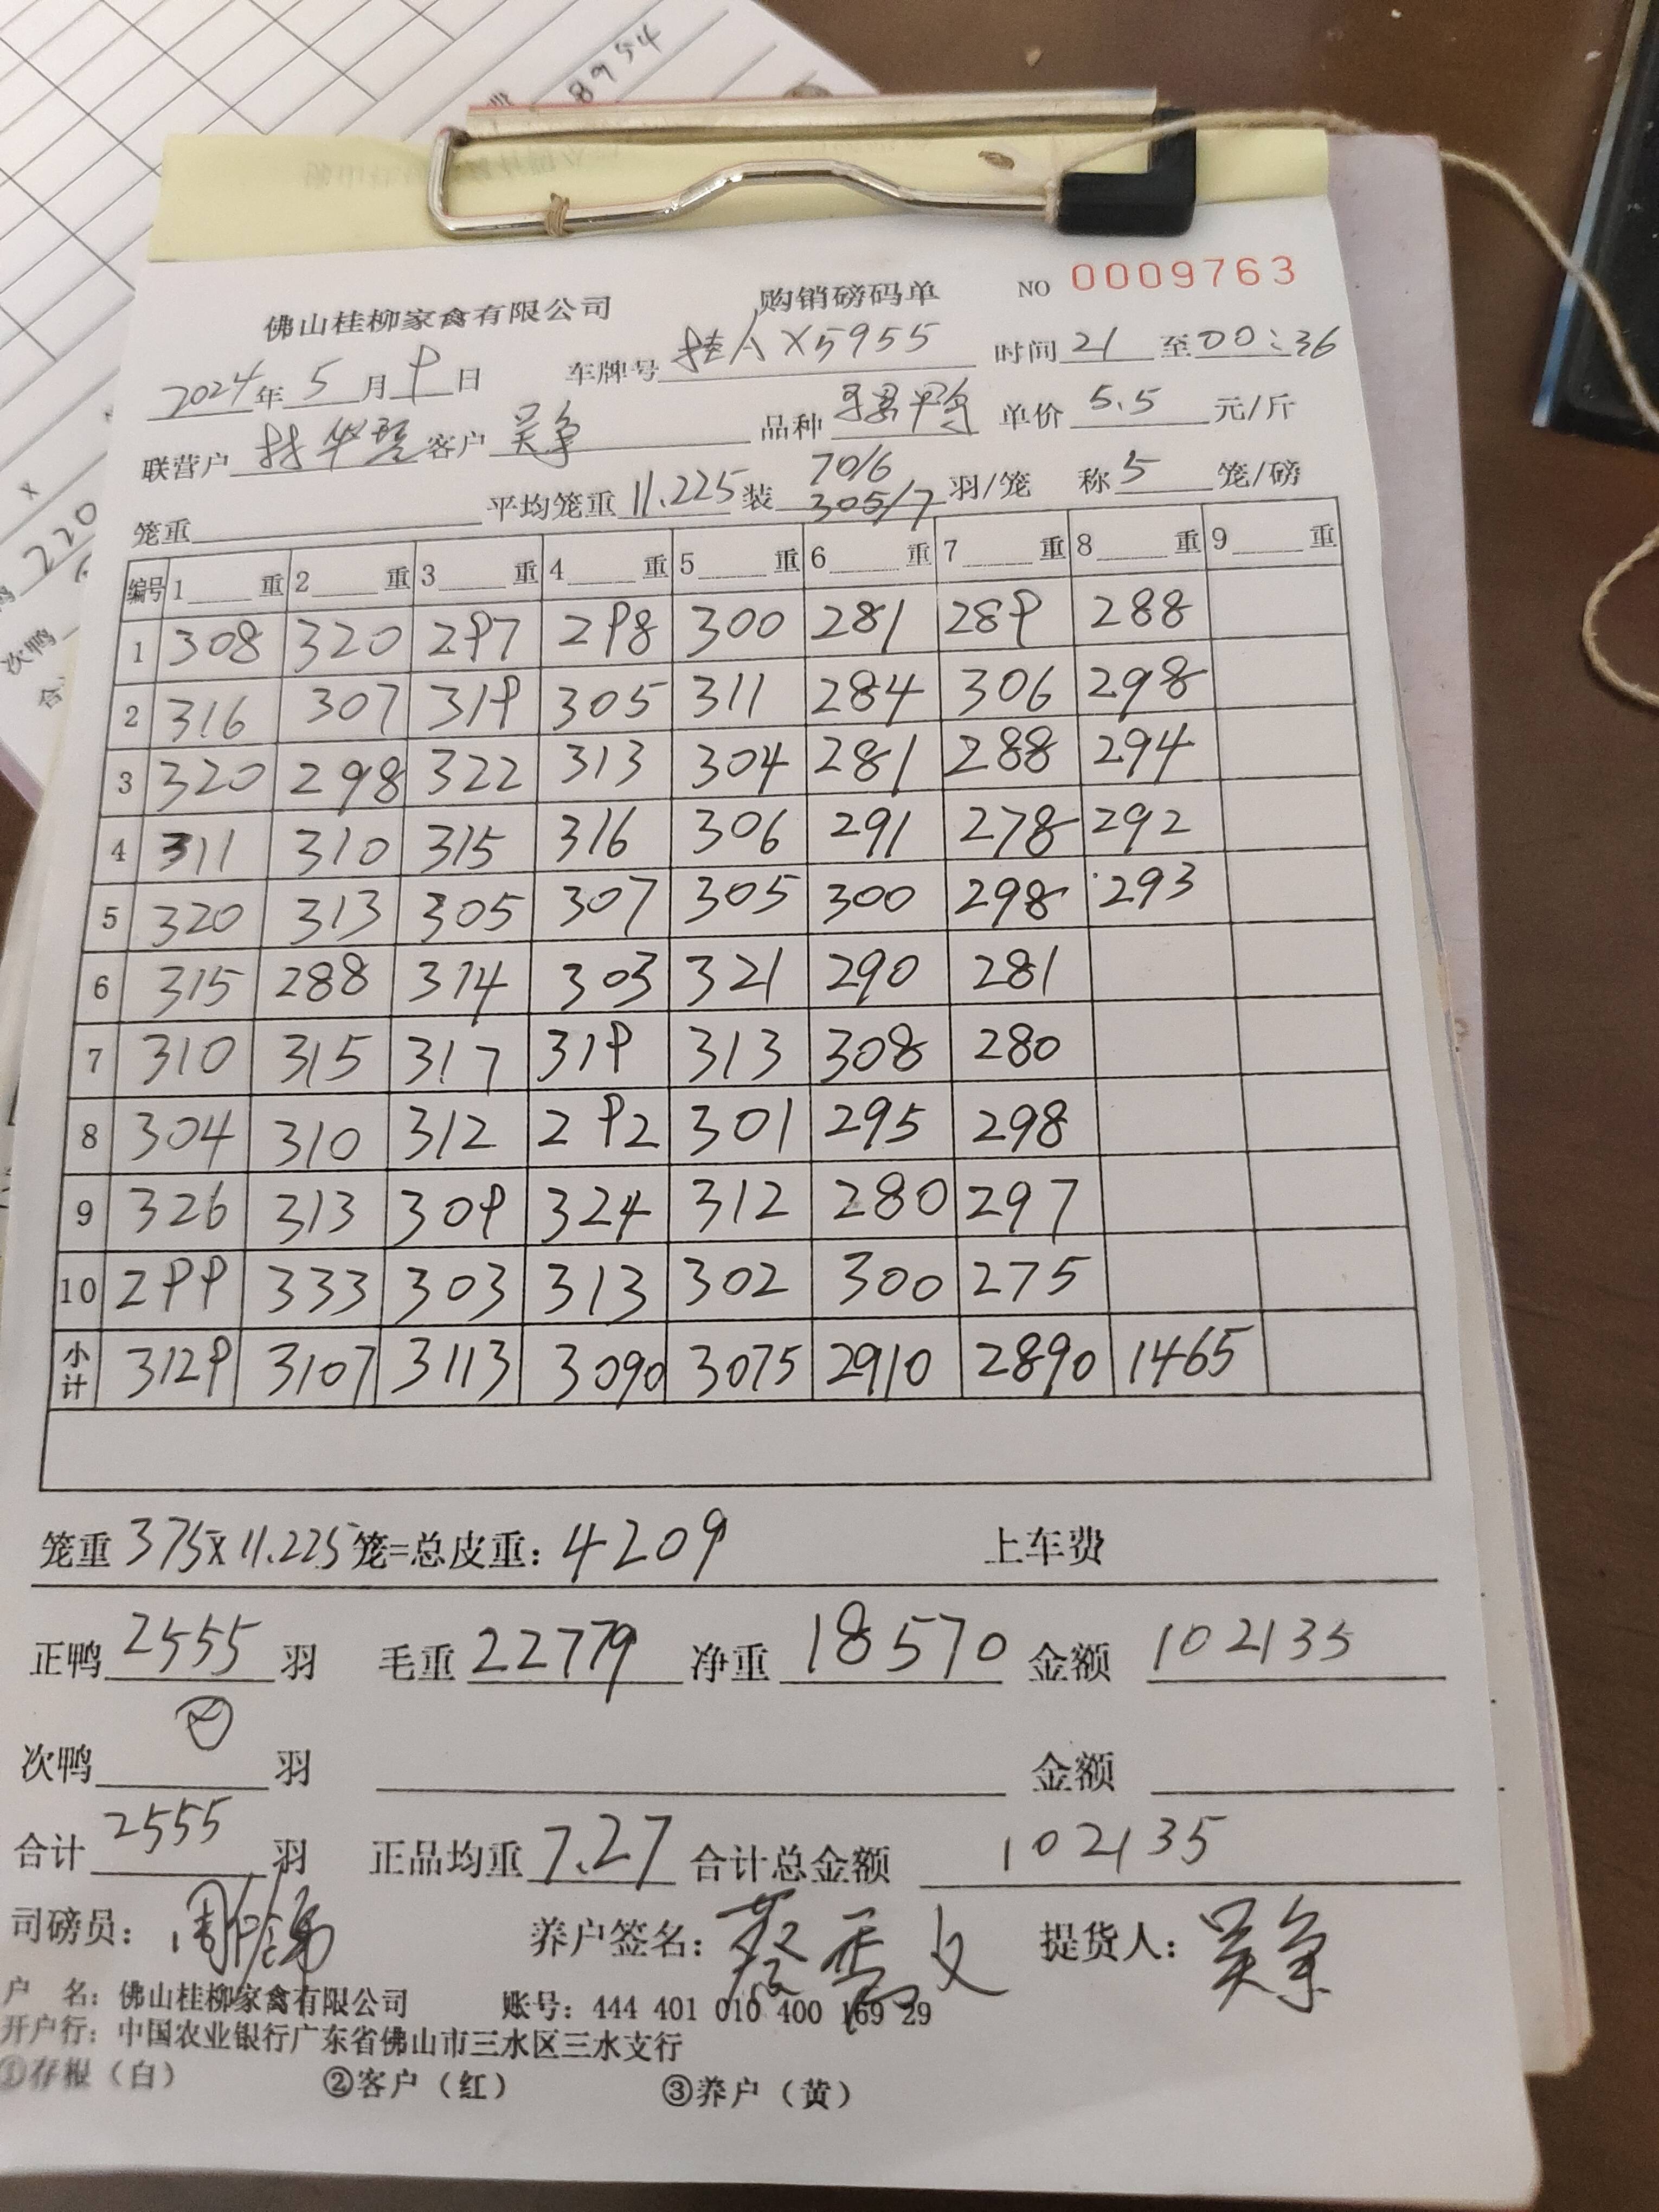 8954
220
次鸭
合
佛山桂柳家禽有限公司 购销磅码单 NO 0009763
2024年5月9日 车牌号 桂AX5955 时间 21 至 00:36
联营户 林华 客户 吴争 品种 鸭 单价 5.5 元/斤
70/6
笼重 平均笼重 11.225 装 305/7 羽/笼 称 5 笼/磅
编号 1 重 2 重 3 重 4 重 5 重 6 重 7 重 8 重 9 重
1 308 320 297 298 300 281 289 288
2 316 307 319 305 311 284 306 298
3 320 298 322 313 304 281 288 294
4 311 310 315 316 306 291 278 292
5 320 313 305 307 305 300 298 293
6 315 288 314 303 321 290 281
7 310 315 317 319 313 308 280
8 304 310 312 292 301 295 298
9 326 313 309 324 312 280 297
10 299 333 303 313 302 300 275
小计 3129 3107 3113 3090 3075 2910 2890 1465
笼重 375x11.225 笼=总皮重: 4209 上车费
正鸭 2555 羽 毛重 22779 净重 18570 金额 102135
次鸭 羽 金额
合计 2555 羽 正品均重 7.27 合计总金额 102135
司磅员: 养户签名: 蔡 文 提货人: 吴争
户 名: 佛山桂柳家禽有限公司 账号: 444 401 010 400 169 29
开户行: 中国农业银行广东省佛山市三水区三水支行
①存根（白） ②客户（红） ③养户（黄）